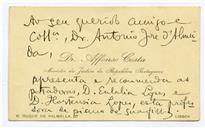 Ao seu querido amigo e
Coll.ª, Dr. Antonio José d'Almei
da,
Dr. Affonso Costa
Ministro da Justiça da Republica Portuguesa
apresenta e recommenda as
portadoras, D. Eulalia Lopes e
D. Hortensia Lopes, esta
de piano de
R. DUQUE DE PALMELLA, 27
LISBOA